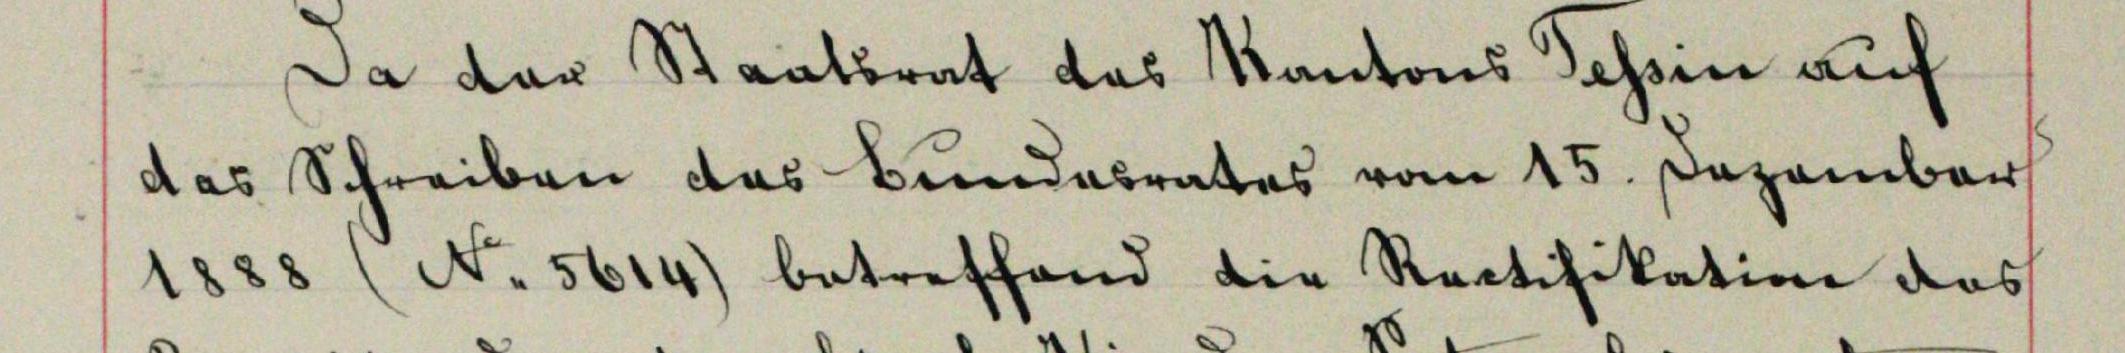 Da der Staatsrat des Kantons Tessin auf
das Schreiben des Bundesrates vom 15. Dezember
1888 (No. 5614) betreffend die Rectifikation des